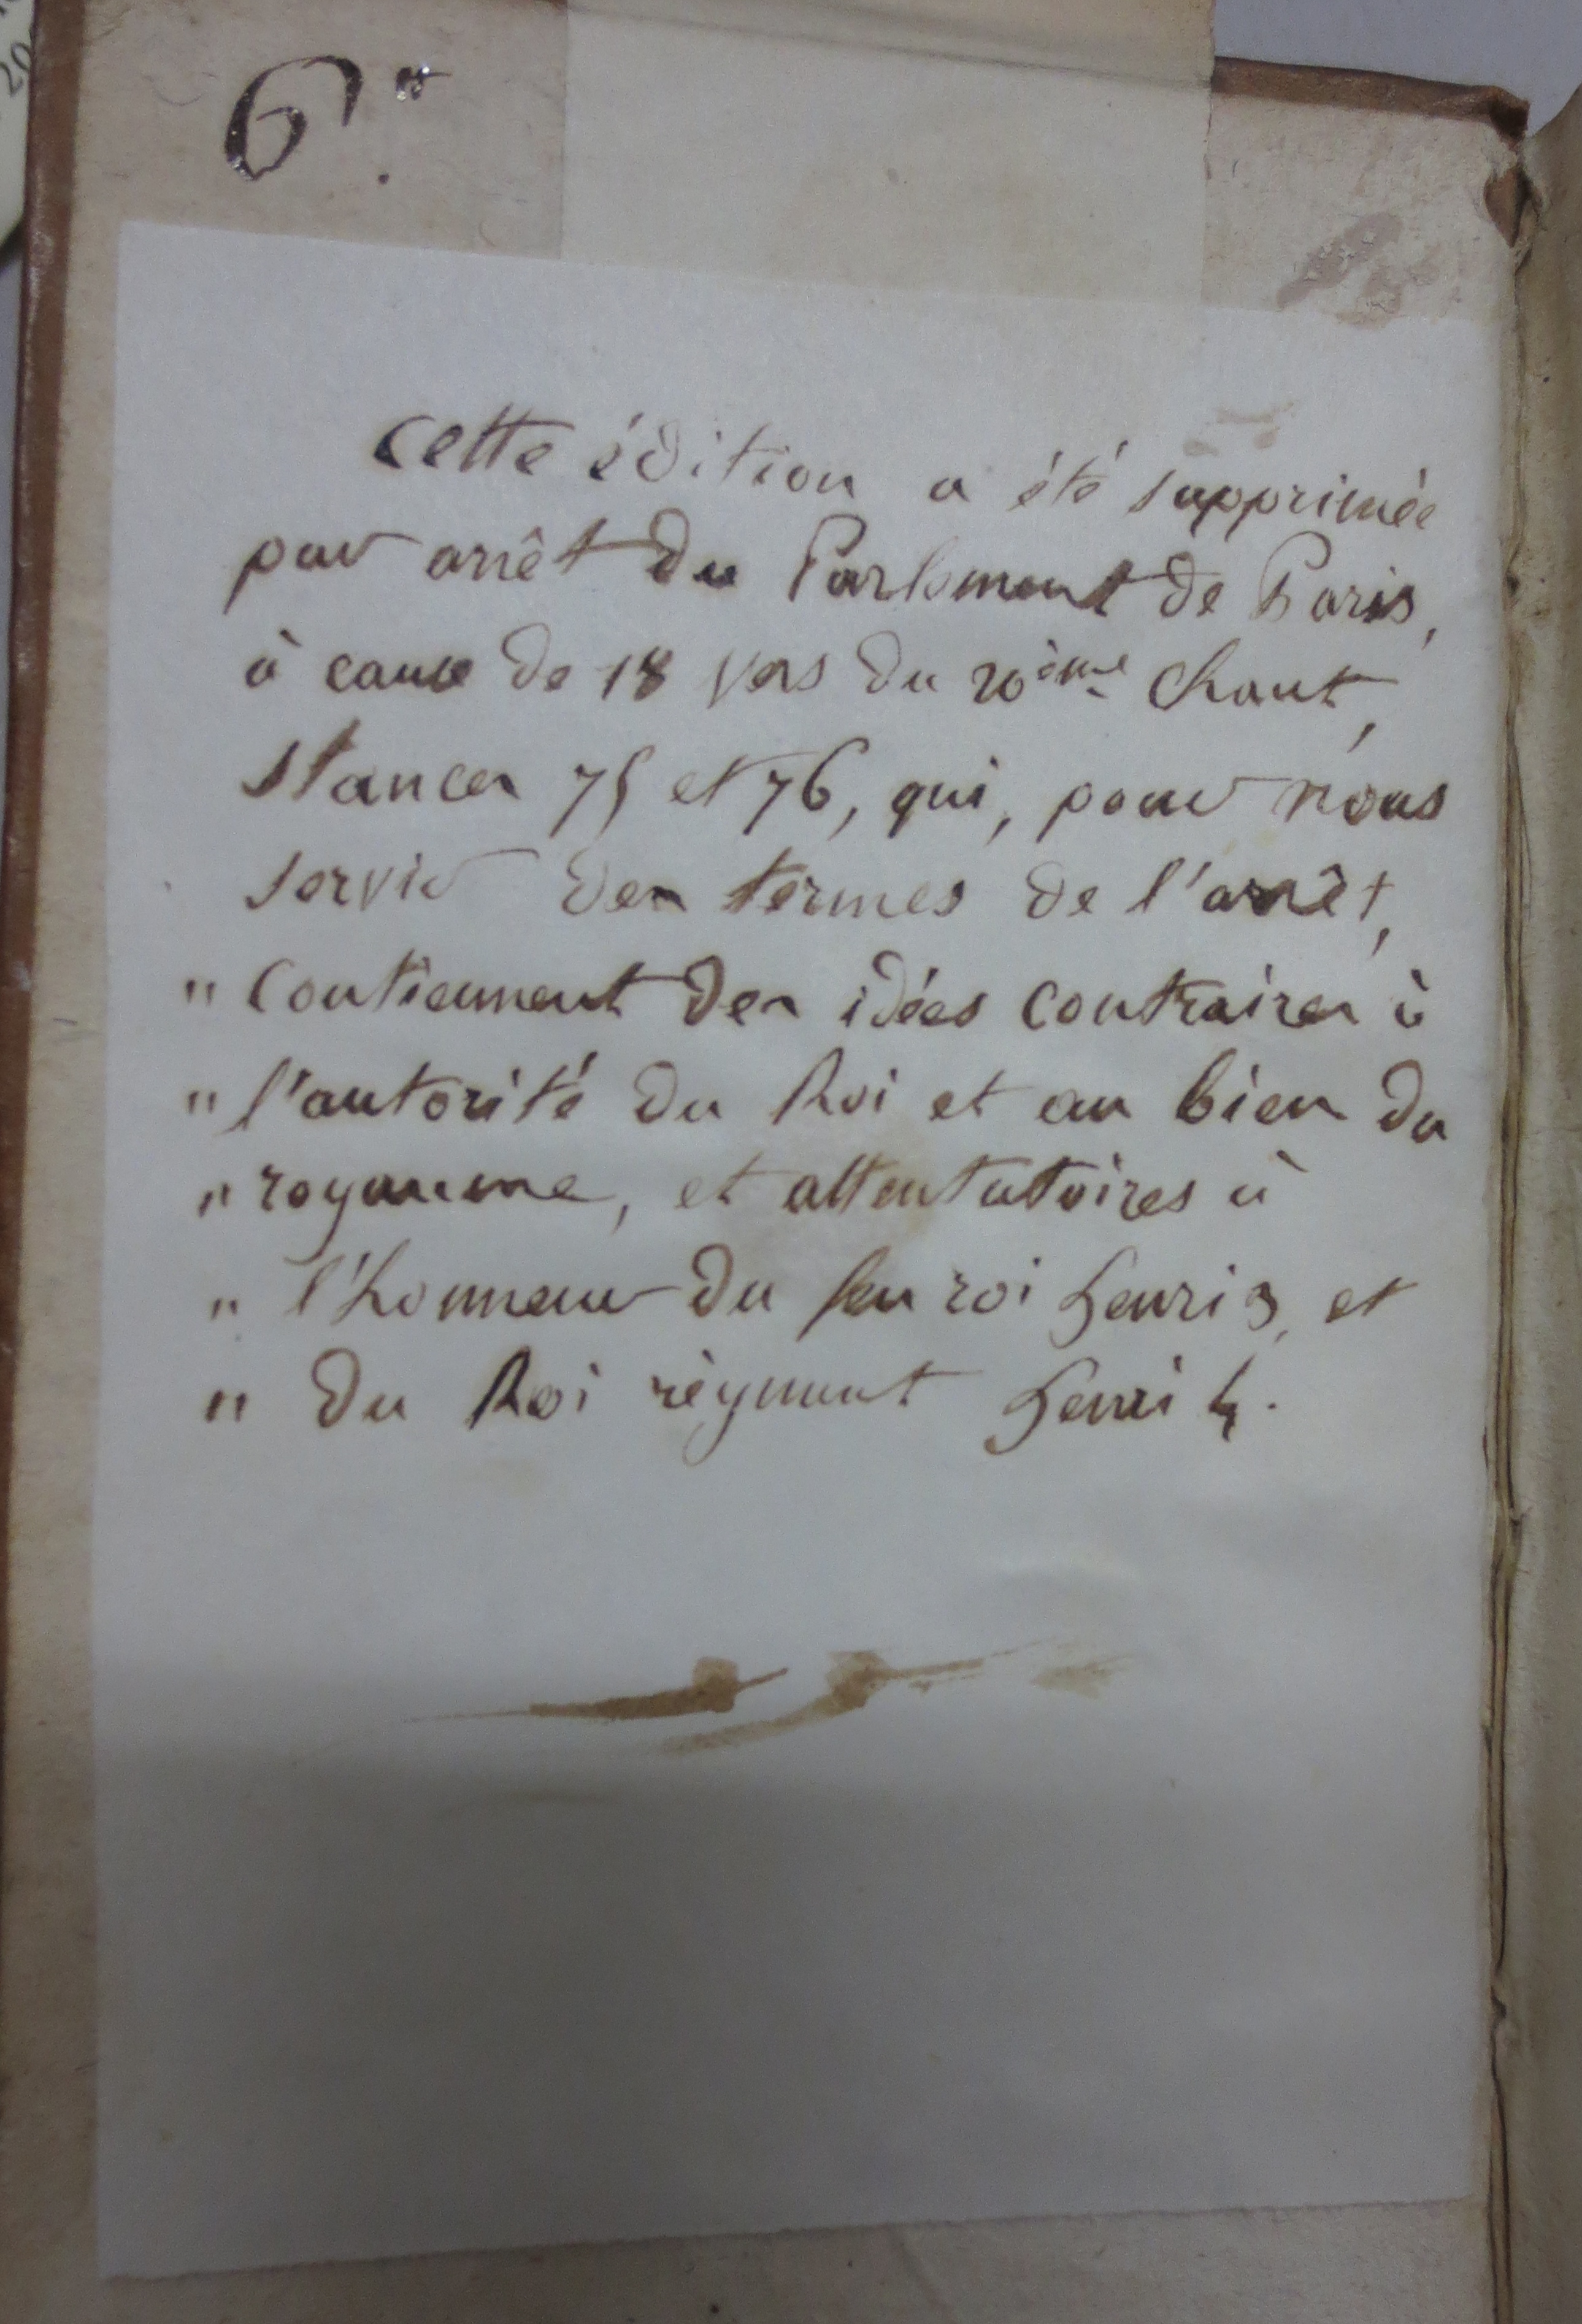 6'.
cette édition a été supprimée
par arrêt du Parlement de Paris,
à cause de 18 vers du 20ème Chant,
stances 75 et 76, qui, pour nous
servir des termes de l'arrêt,
" contiennent des idées contraires à
" l'autorité du Roi et au bien du
" royaume, et attentatoires à
" l'honneur du feu roi henri 3, et
" du Roi règnant henri 4.